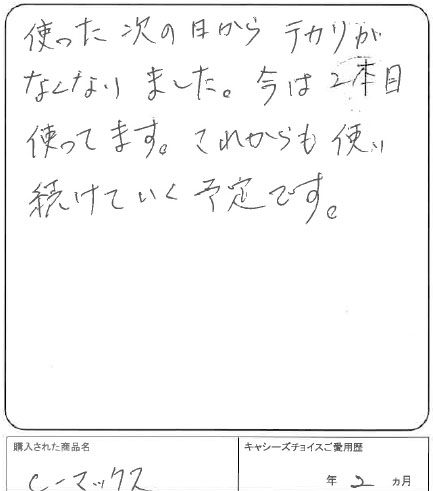 使った次の日からテカリが
なくなりました。今は2本目
使ってます。これからも使い
続けていく予定です。
購入された商品名
キャシーズチョイスご愛用歴
C-マックス
年 2 ヵ月